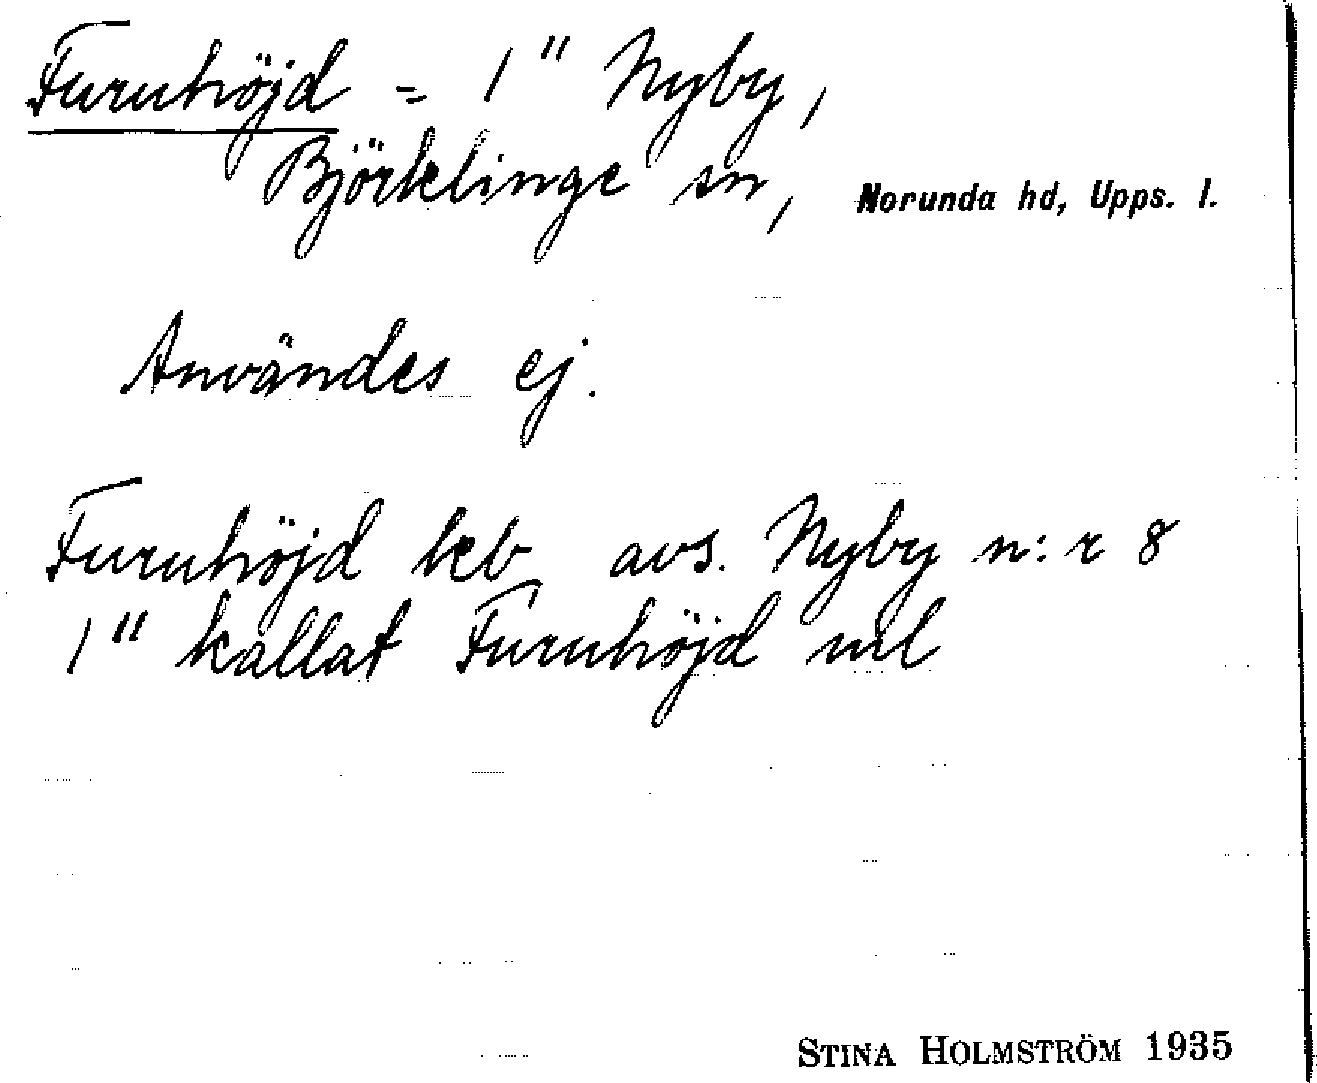 Furuhöjd = 1" Nyby,
Björklinge sn, Norunda hd, Upps. l.
Användes ej.
Furuhöjd leb avs. Nyby n:r 8
1" kallat Furuhöjd ml
STINA HOLMSTRÖM 1935